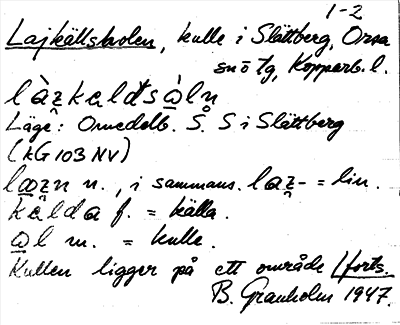 1-2
Lajkällsholen, kulle i Slättberg, Orsa
sn o tg, Kopparb. l.
là̱z̭kaldsà̱ln
Läge: Omedelb. S. S i Slättberg
(KG 103 NV)
lazn n., i sammans. laz- = lin.
kälda f. = källa.
al m. = kulle.
Kullen ligger på ett område /forts.
B. Granholm 1947.